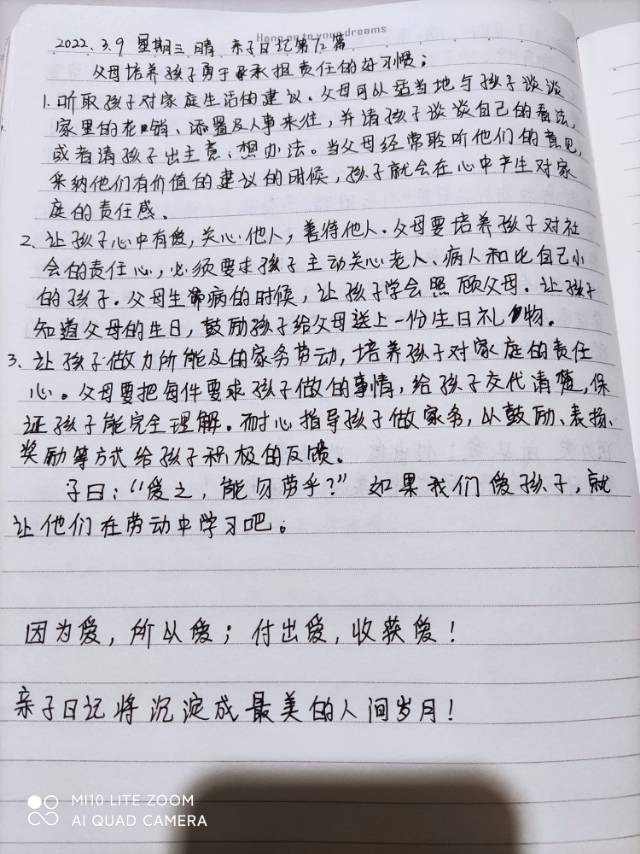 Hang on to your dreams
2022.3.9 星期三 晴 亲子日记第72篇
父母培养孩子勇于承担责任的好习惯；
1.听取孩子对家庭生活的建议。父母可以适当地与孩子谈谈
家里的花销、添置及人事来往，并请孩子谈谈自己的看法，
或者请孩子出主意、想办法。当父母经常聆听他们的意见，
采纳他们有价值的建议的时候，孩子就会在心中产生对家
庭的责任感。
2、让孩子心中有爱，关心他人，善待他人。父母要培养孩子对社
会的责任心，必须要求孩子主动关心老人、病人和比自己小
的孩子。父母生病的时候，让孩子学会照顾父母。让孩子
知道父母的生日，鼓励孩子给父母送上一份生日礼物。
3、让孩子做力所能及的家务劳动，培养孩子对家庭的责任
心。父母要把每件要求孩子做的事情，给孩子交代清楚，保
证孩子能完全理解。耐心指导孩子做家务，以鼓励、表扬、
奖励等方式给孩子积极的反馈。
子曰：“爱之，能勿劳乎？”如果我们爱孩子，就
让他们在劳动中学习吧。
因为爱，所以爱；付出爱，收获爱！
亲子日记将沉淀成最美的人间岁月！
MI10 LITE ZOOM
AI QUAD CAMERA